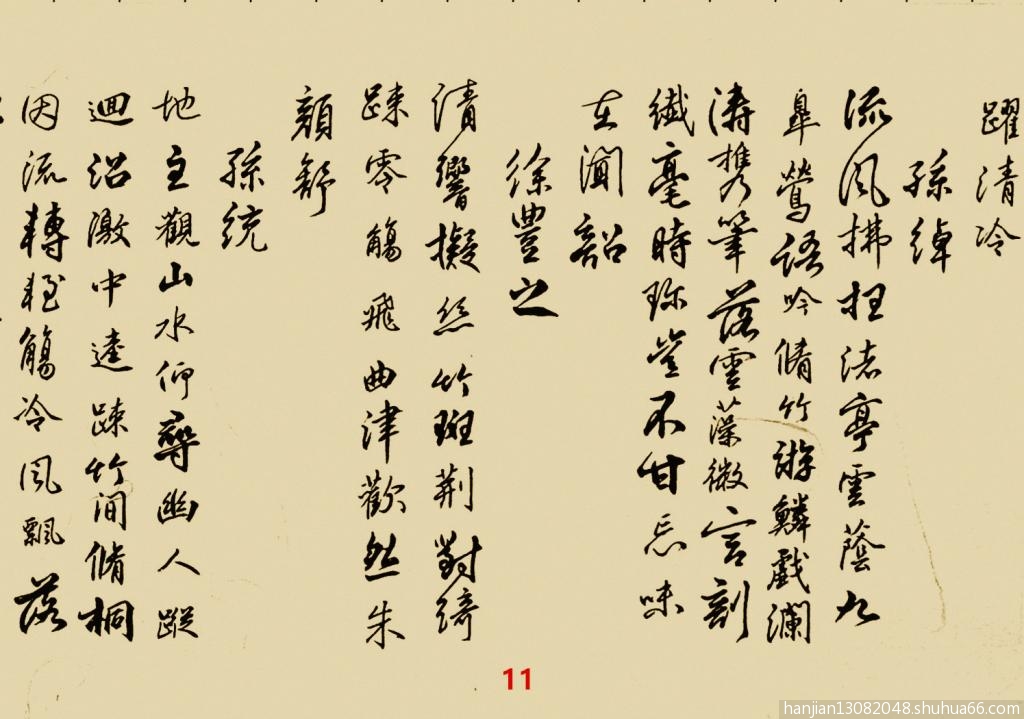 躍清冷
孫綽
流風拂枉渚亭雲蔭九
皐鶯語吟脩竹游鱗戲瀾
濤携筆落雲藻微言剖
纖毫時珍豈不甘忘味
在聞韶
徐豐之
清響擬絲竹班荊對綺
踈零觴飛曲津歡然朱
顏舒
孫統
地主觀山水仰尋幽人蹤
迴沼激中逵踈竹間脩桐
因流轉輕觴冷風飄落
11
hanjian13082048.shuhua66.com